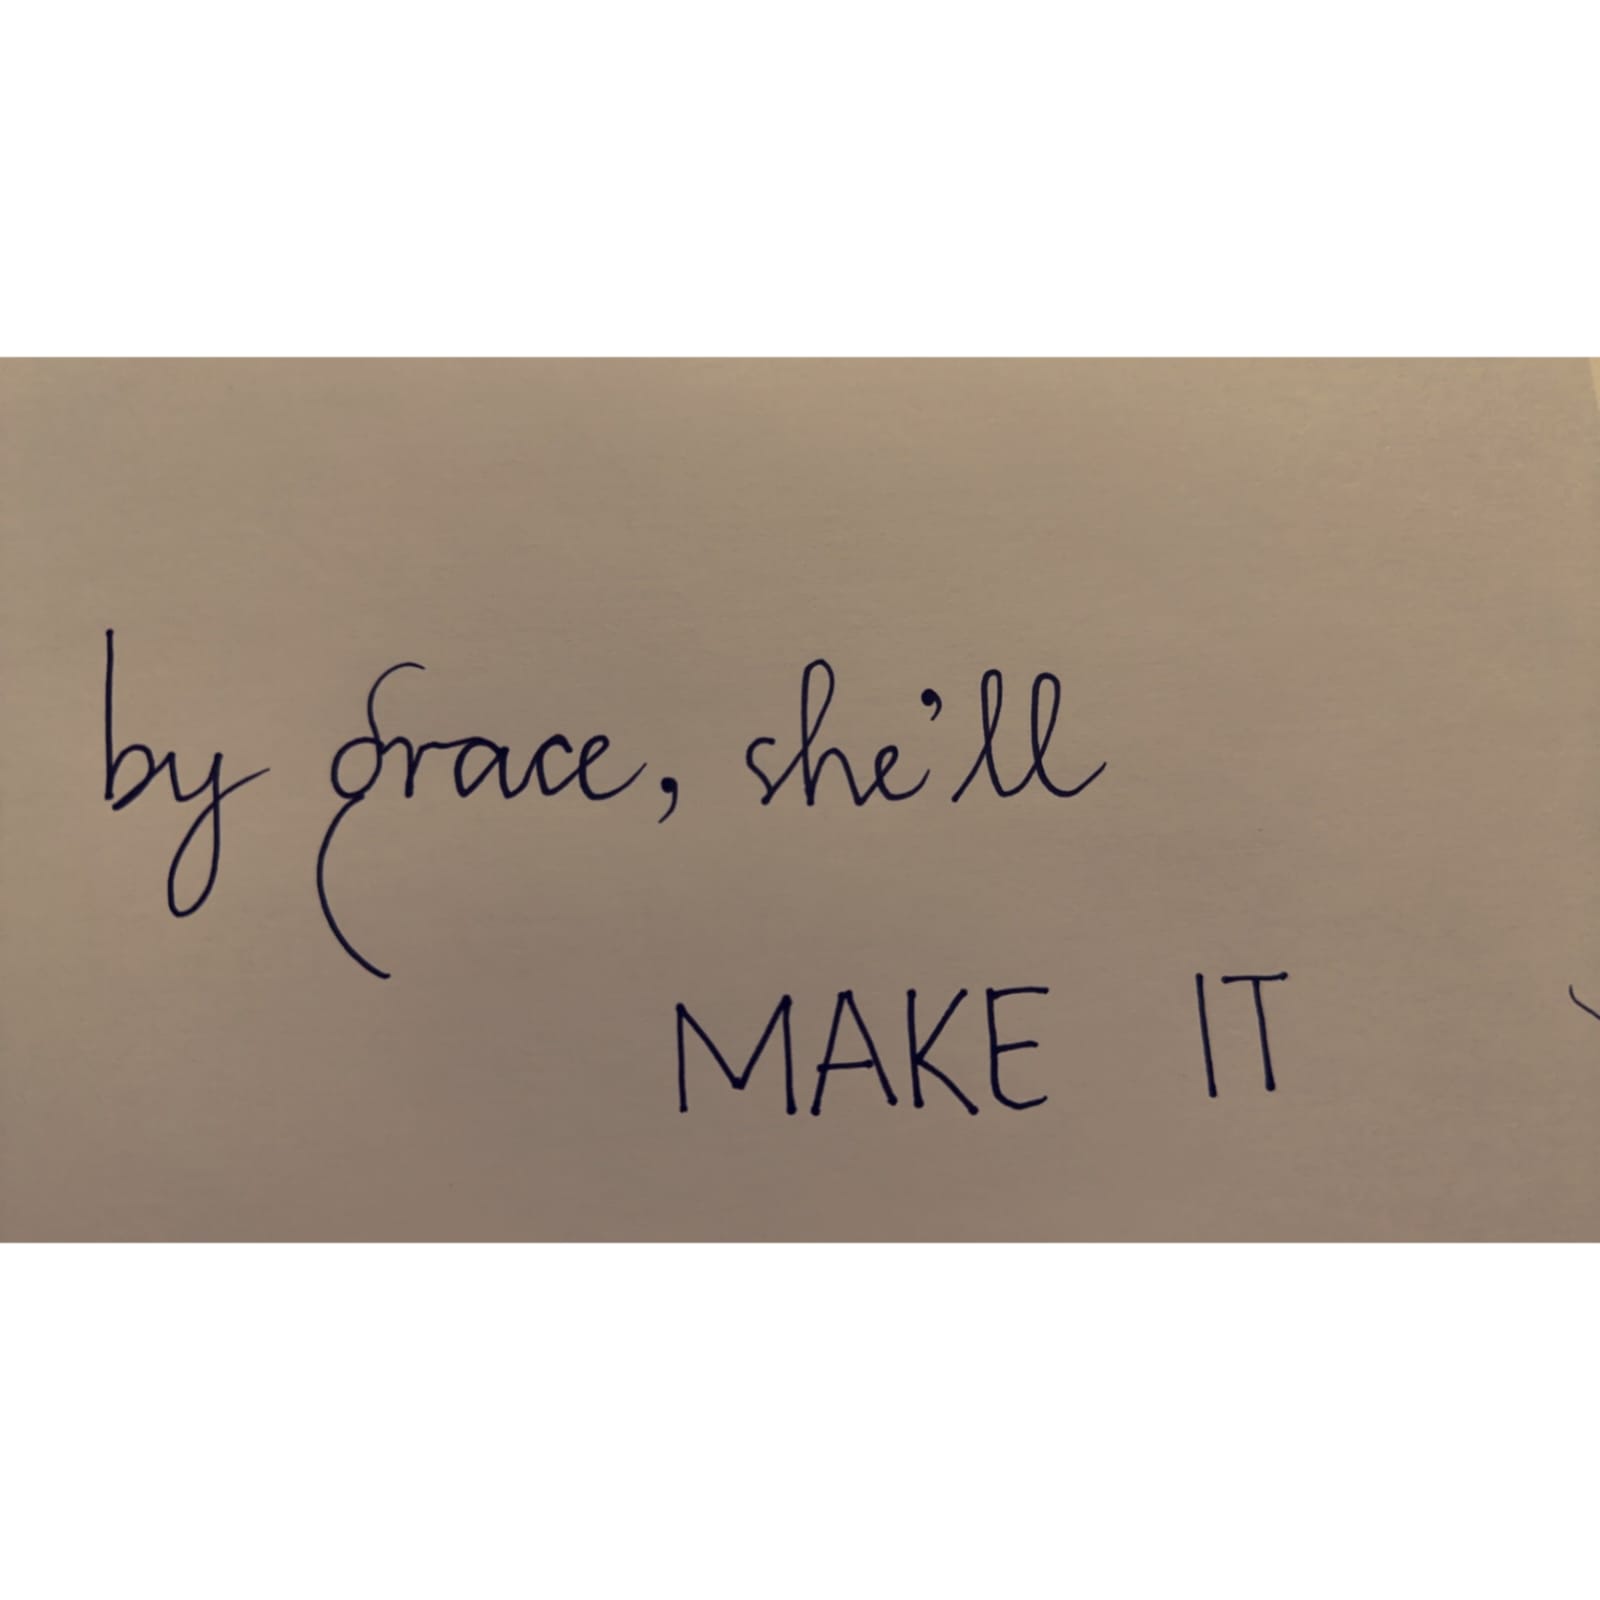 by grace, she'll
MAKE IT